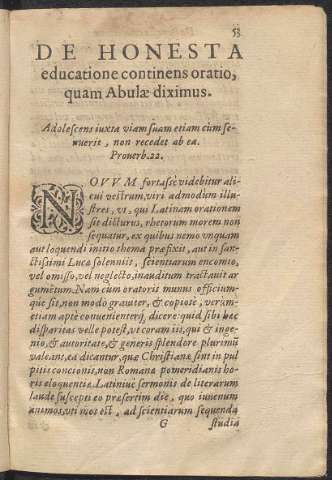 53
DE HONESTA
educatione continens oratio,
quam Abulæ diximus.
Adolescens iuxta viam suam etiam cùm se-
nuerit, non recedet ab ea.
Prouerb. 22.
NOVVM fortassè videbitur ali-
cui vestrum, viri admodum illu-
stres, vt, qui Latinam orationem
sit dicturus, rhetorum morem non
sequatur, ex quibus nemo vnquam
aut loquendi initio thema præfixit, aut in san-
ctissimi Lucæ solenniis, scientiarum encomio,
vel omisso, vel neglecto, inauditum tractauit ar-
gumẽtum. Nam cùm oratoris munus officium-
que sit, non modo grauiter, & copiosè, verùm-
etiam aptè conuenienterq́, dicere: quid sibi hæc
disparitas velle potest, vt coram iis, qui & inge-
nio, & autoritate, & generis splendore plurimũ
valeant, ea dicantur, quæ Christianæ sint in pul-
pitis concionis, non Romanæ pomeridianis ho-
ris eloquentiæ. Latiniuè sermonis de literarum
laude suscepti eo præsertim die, quo iuuenum
animos, vti mos est, ad scientiarum sequenda
G studia